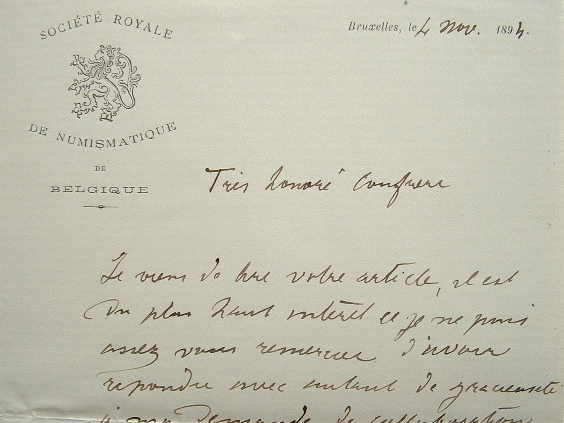 SOCIÉTÉ ROYALE
DE NUMISMATIQUE
DE
BELGIQUE
Bruxelles, le 4 Nov. 1894.
Très honoré Confrère
Je viens de lire votre article, il est
du plus haut intérêt et je ne puis
assez vous remercier d'avoir
répondu avec autant de gracieuseté
à ma demande de collaboration